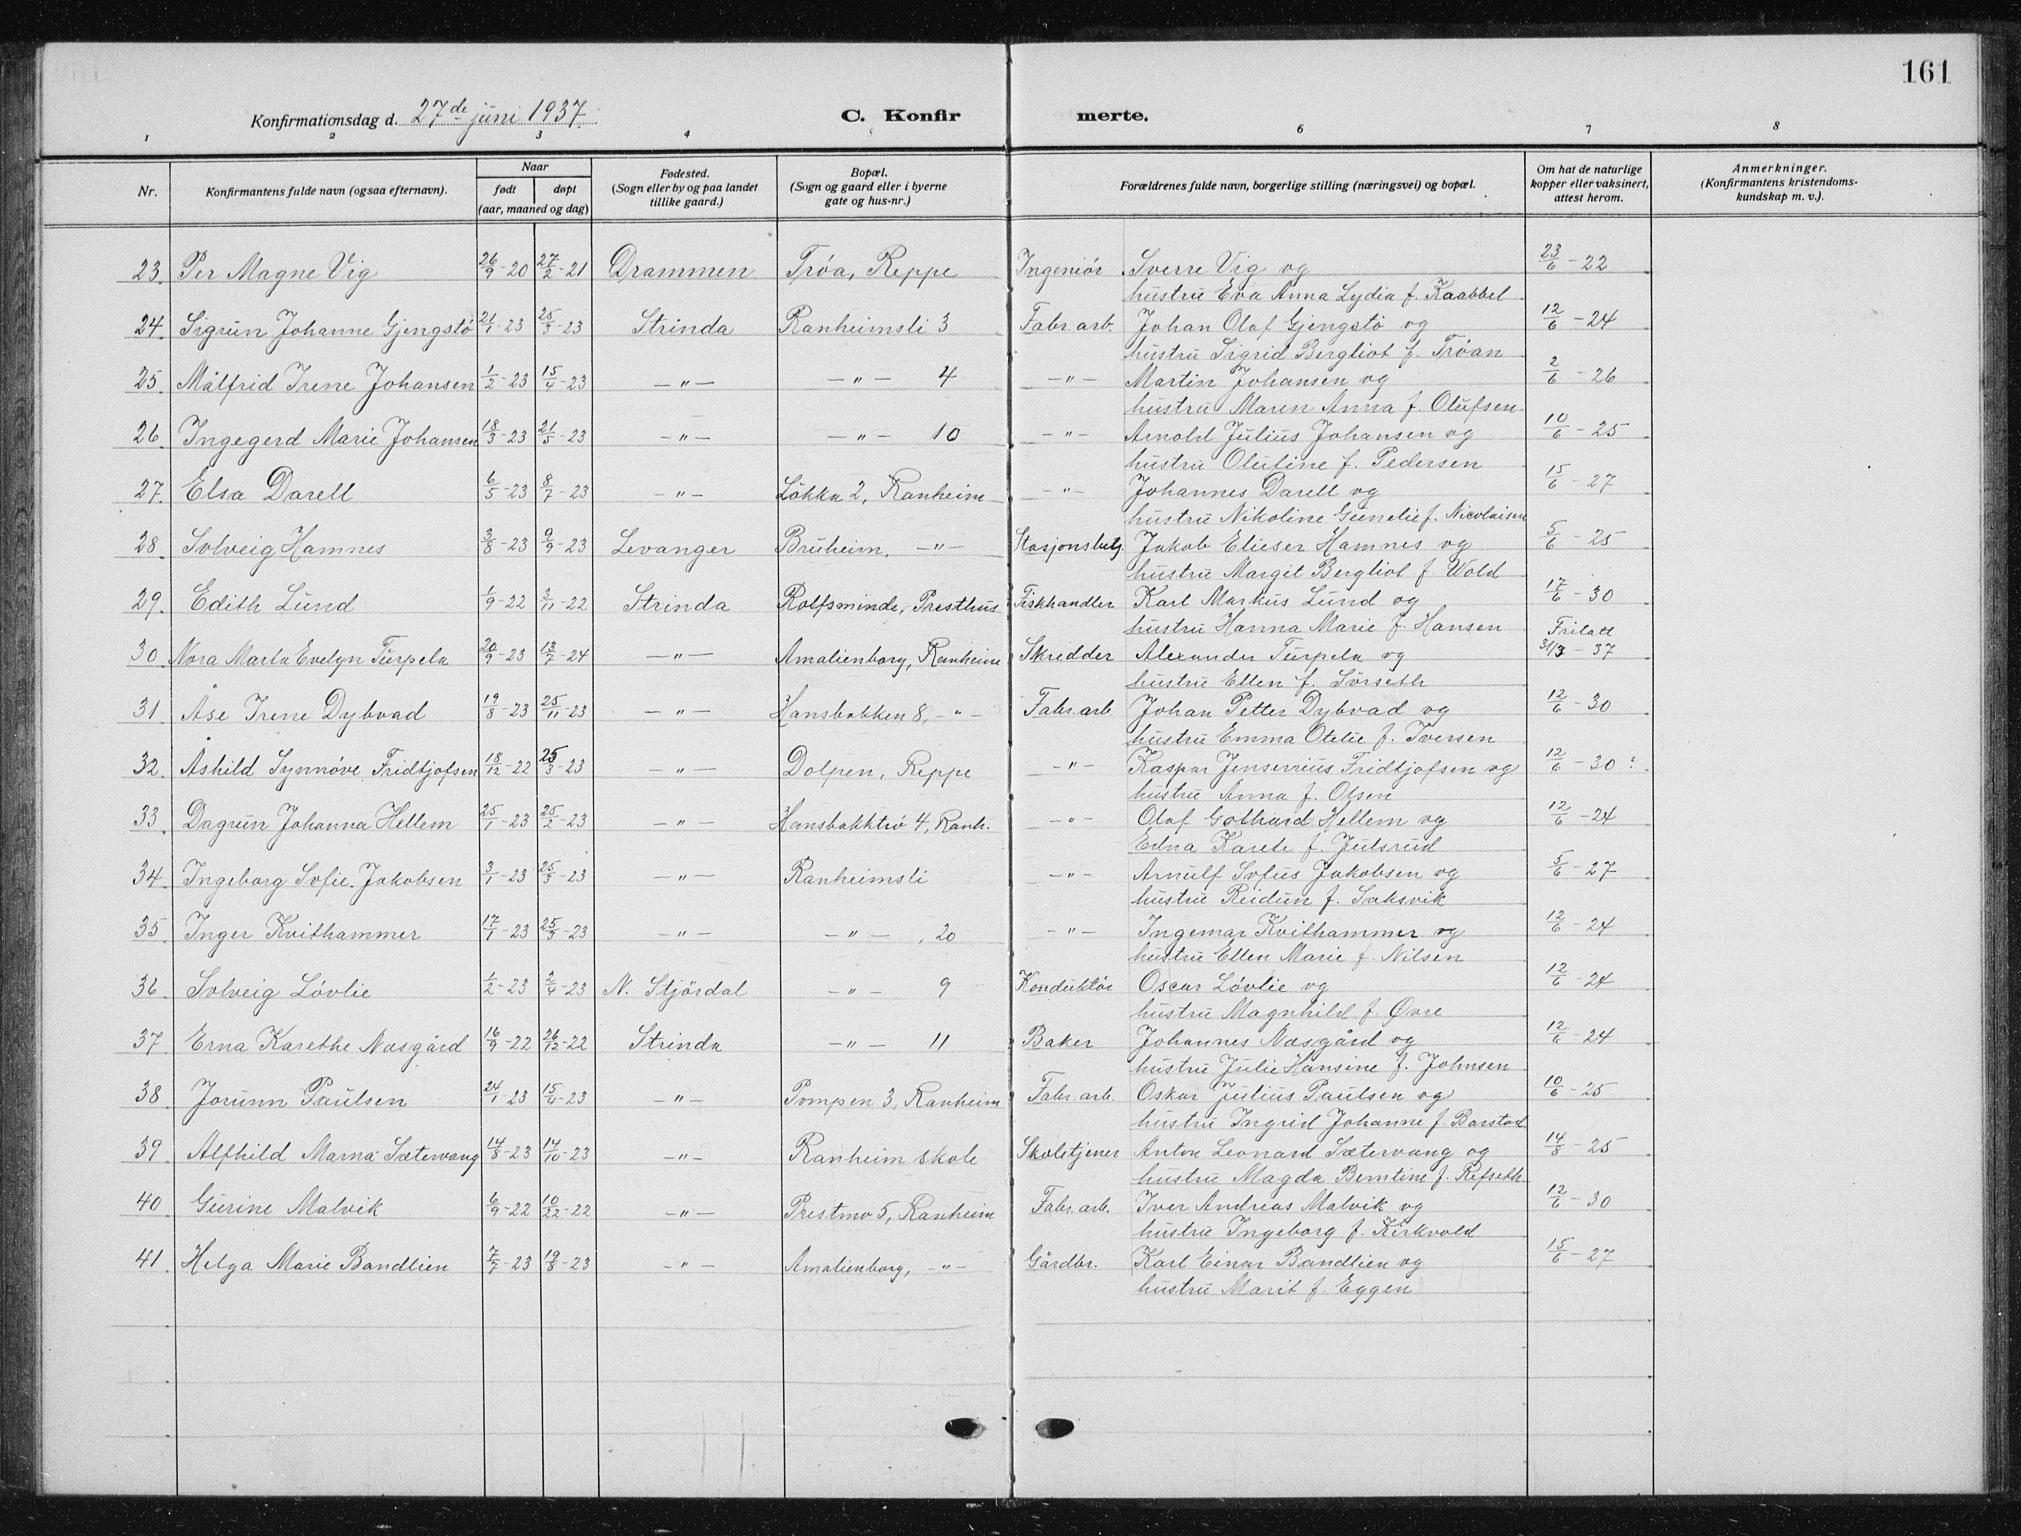 161
Konfirmationsdag d. 27de juni 1937. C. Konfirmerte.
1 2 3 4 5 6 7 8
Nr. Konfirmantens fulde navn (ogsaa efternavn). Naar født døpt (aar, maaned og dag) Fødested. (Sogn eller by og paa landet tillike gaard.) Bopæl. (Sogn og gaard eller i byerne gate og hus-nr.) Forældrenes fulde navn, borgerlige stilling (næringsvei) og bopæl. Om hat de naturlige kopper eller vaksinert, attest herom. Anmerkninger. (Konfirmantens kristendoms-kundskap m. v.).
23. Per Magne Vig 26/9-20 27/2-21 Drammen Trøa, Reppe Ingeniør Sverre Vig og 23/6-22
hustru Eva Anna Lydia f. Kaabbel
24. Sigrun Johanne Gjengstö 21/1-23 25/3-23 Strinda Ranheimsli 3 Fabr. arb. Johan Olaf Gjengstö og 12/6-24
hustru Sigrid Bergliot f. Trøan
25. Målfrid Irene Johansen 1/2-23 15/4-23 -"- -"- 4 -"- Martin Johansen og 2/6-26
hustru Maren Anna f. Olufsen
26. Ingegerd Marie Johansen 18/3-23 21/5-23 -"- -"- 10 -"- Arnold Julius Johansen og 10/6-25
hustru Olufine f. Pedersen
27. Elsa Darell 6/5-23 8/7-23 -"- Lökka 2, Ranheim -"- Johannes Darell og 15/6-27
hustru Nikoline f. Nicolaisen
28. Solveig Hamnes 3/8-23 9/9-23 Levanger Bruheim, -"- Stasjonsbetj. Jakob Elieser Hamnes og 5/6-25
hustru Margit Bergliot f. Wold
29. Edith Lund 1/9-22 3/11-22 Strinda Rolfsminde, Presthus Fiskhandler Karl Markus Lund og 17/6-30
hustru Hanna Marie f. Hansen
30. Nora Marta Evelyn Turpela 20/9-23 13/7-24 -"- Amalienborg, Ranheim Skredder Alexander Turpela og Fritatt 31/3-37
hustru Ellen f. Sörseth
31. Åse Irene Dybvad 19/8-23 25/11-23 -"- Hansbakken 8, -"- Fabr. arb. Johan Petter Dybvad og 12/6-30
hustru Emma Otelie f. Iversen
32. Åshild Synnöve Fridtjofsen 18/12-22 25/3-23 -"- Dolpen, Reppe -"- Kaspar Jensenius Fridtjofsen og 12/6-30
hustru Anna f. Olsen
33. Dagrun Johanna Hellem 25/1-23 25/2-23 -"- Hansbakktrö 4, Ranh. -"- Olaf Gothard Hellem og 12/6-24
Edna Karete f. Julsrud
34. Ingeborg Sofie Jakobsen 3/1-23 25/3-23 -"- Ranheimsli -"- Arnulf Sofus Jakobsen og 5/6-27
hustru Reidun f. Saksvik
35. Inger Kvithammer 17/1-23 25/3-23 -"- -"-, 20 -"- Ingemar Kvithammer og 12/6-24
hustru Ellen Marie f. Nilsen
36. Solveig Lövlie 1/2-23 2/4-23 N. Stjördal -"- 9 Konduktör Oscar Lövlie og 12/6-24
hustru Magnhild f. Øvre
37. Erna Karethe Næsgård 16/9-22 26/12-22 Strinda -"- 11 Baker Johannes Næsgård og 12/6-24
hustru Julie Hansine f. Johnsen
38. Jorunn Paulsen 24/1-23 15/4-23 -"- Pompen 3, Ranheim Fabr. arb. Oskar Julius Paulsen og 10/6-25
hustru Ingrid Johanne f. Barstad
39. Alfhild Marna Sætervang 14/8-23 14/10-23 -"- Ranheim skole Skoletjener Anton Leonard Sætervang og 14/8-25
hustru Magda Berntine f. Refseth
40. Gurine Malvik 6/9-22 10/22-22 -"- Prestmo 5, Ranheim Fabr. arb. Iver Andreas Malvik og 12/6-30
hustru Ingeborg f. Kirkvold
41. Helga Marie Bandlien 7/7-23 19/8-23 -"- Amalienborg, -"- Gårdbr. Karl Einar Bandlien og 15/6-27
hustru Marit f. Eggen